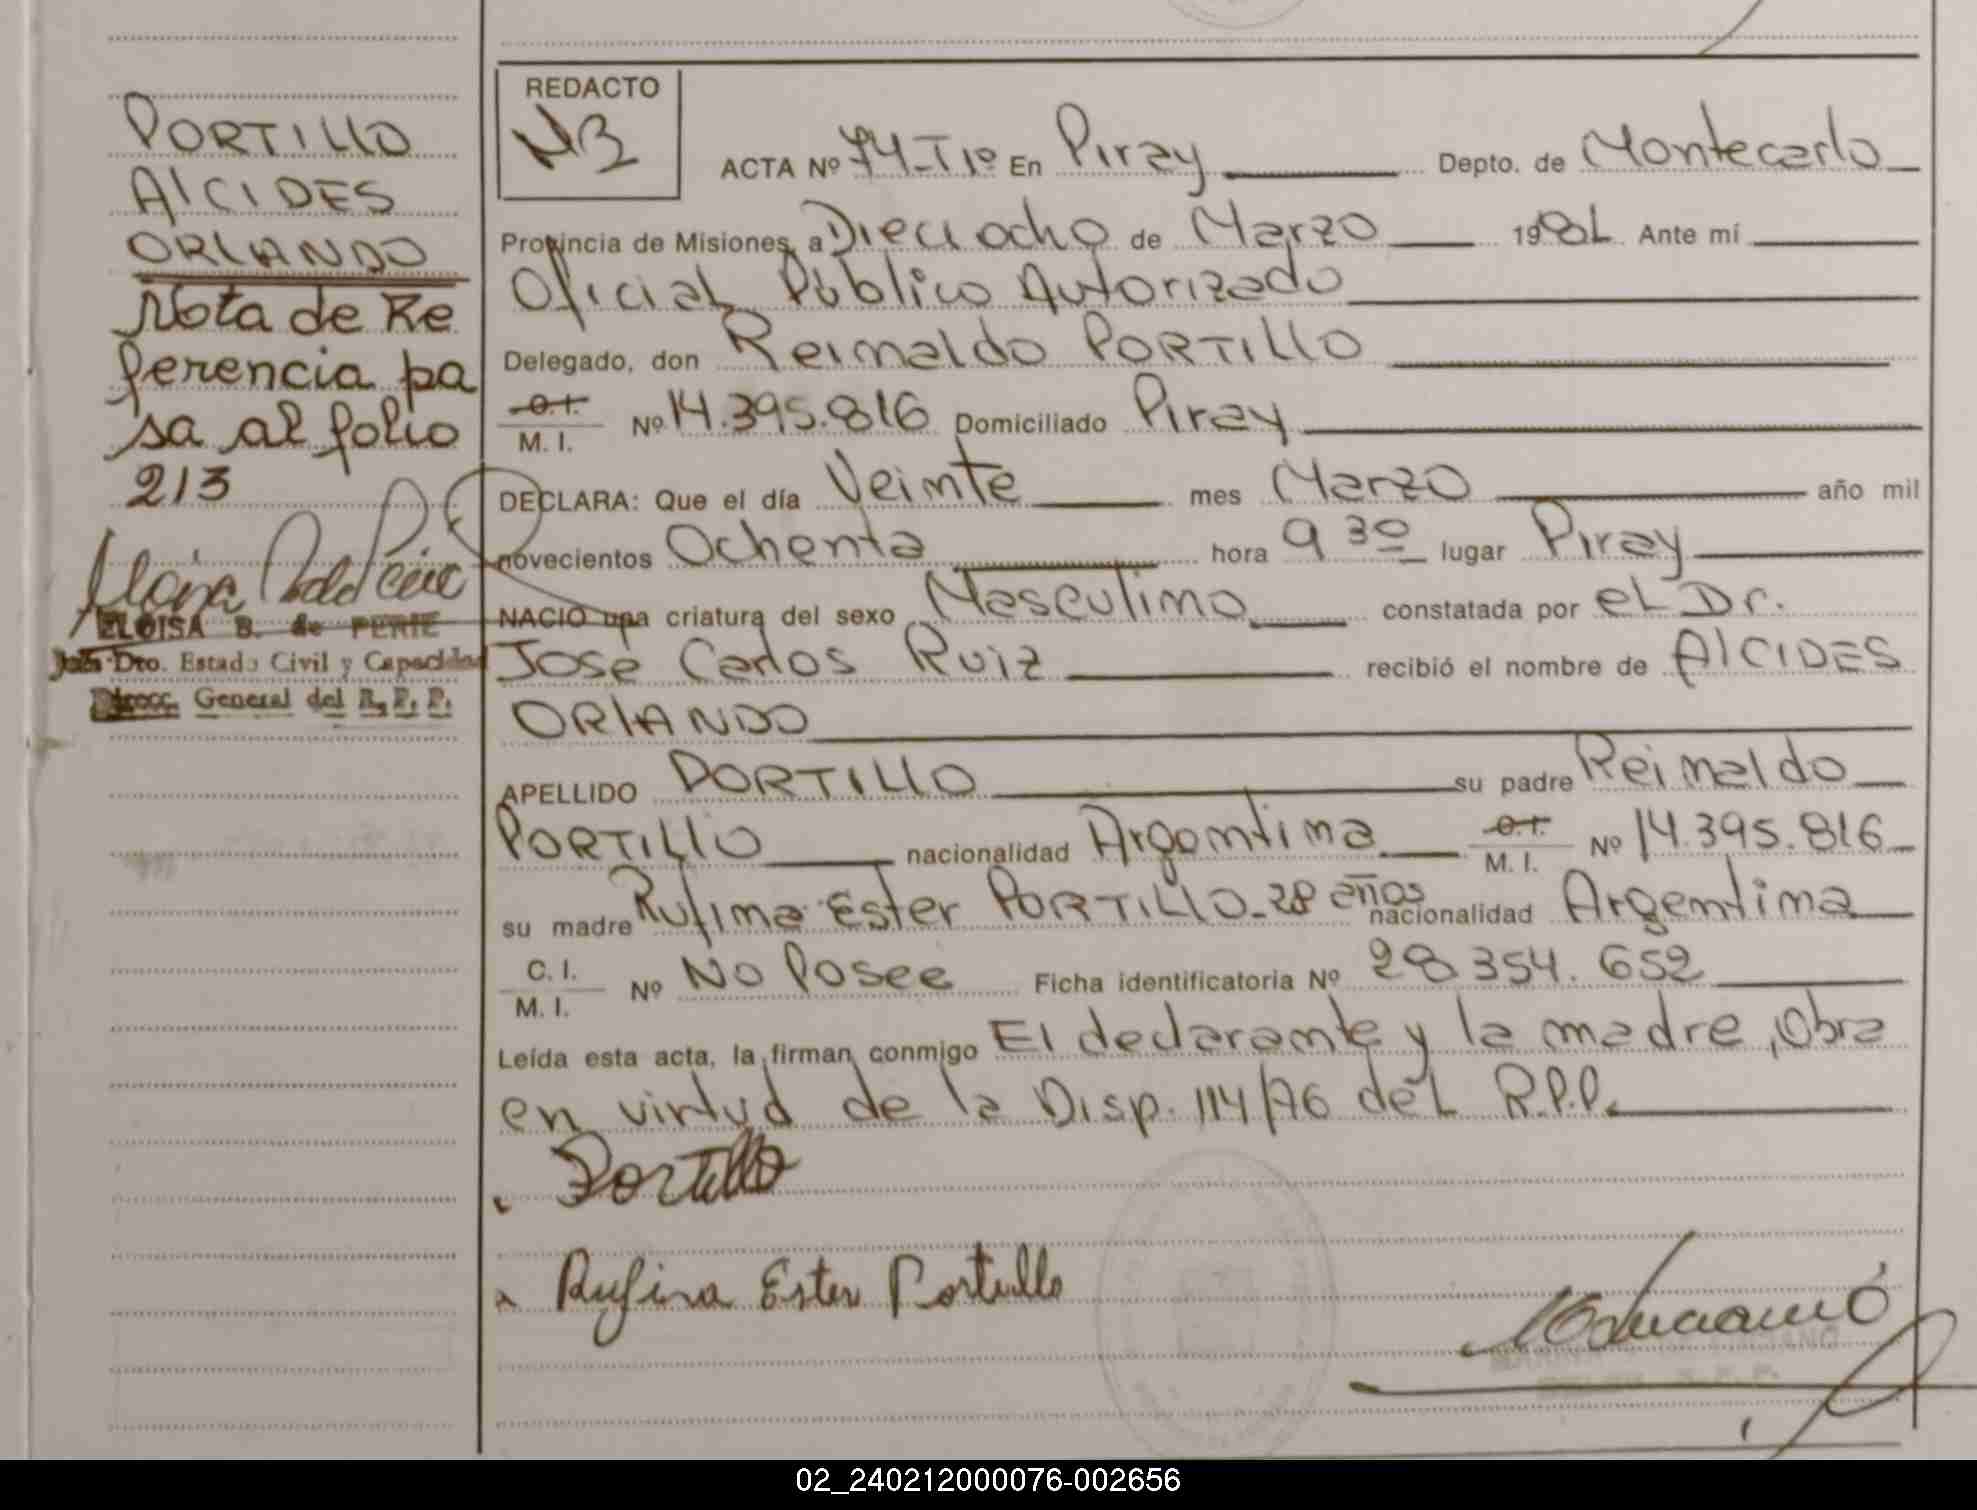 PORTILLO
ALCIDES
ORLANDO
Nota de Re
ferencia pa
sa al folio
213
ELOISA B. de PERIE
Jefa Dto. Estado Civil y Capacidad
Direcc. General del R. P. P.
REDACTO
ACTA Nº 74-T1º En Piray Depto. de Montecarlo
Provincia de Misiones, a Dieciocho de Marzo 1981. Ante mí
Oficial Público Autorizado
Delegado, don Reinaldo PORTILLO
C. I.
M. I. Nº 14.395.816 Domiciliado Piray
DECLARA: Que el día Veinte mes Marzo año mil
novecientos Ochenta hora 9 30 lugar Piray
NACIO una criatura del sexo Masculino constatada por el Dr.
José Carlos Ruiz recibió el nombre de ALCIDES
ORLANDO
APELLIDO PORTILLO su padre Reinaldo
PORTILLO nacionalidad Argentina C. I. M. I. Nº 14.395.816
su madre Rufina Ester PORTILLO-28 años nacionalidad Argentina
C. I.
M. I. Nº No Posee Ficha identificatoria Nº 28.354.652
Leída esta acta, la firman conmigo El declarante y la madre, Obra
en virtud de la Disp. 114/76 del R.P.P.
Portillo
Rufina Ester Portillo
02_240212000076-002656